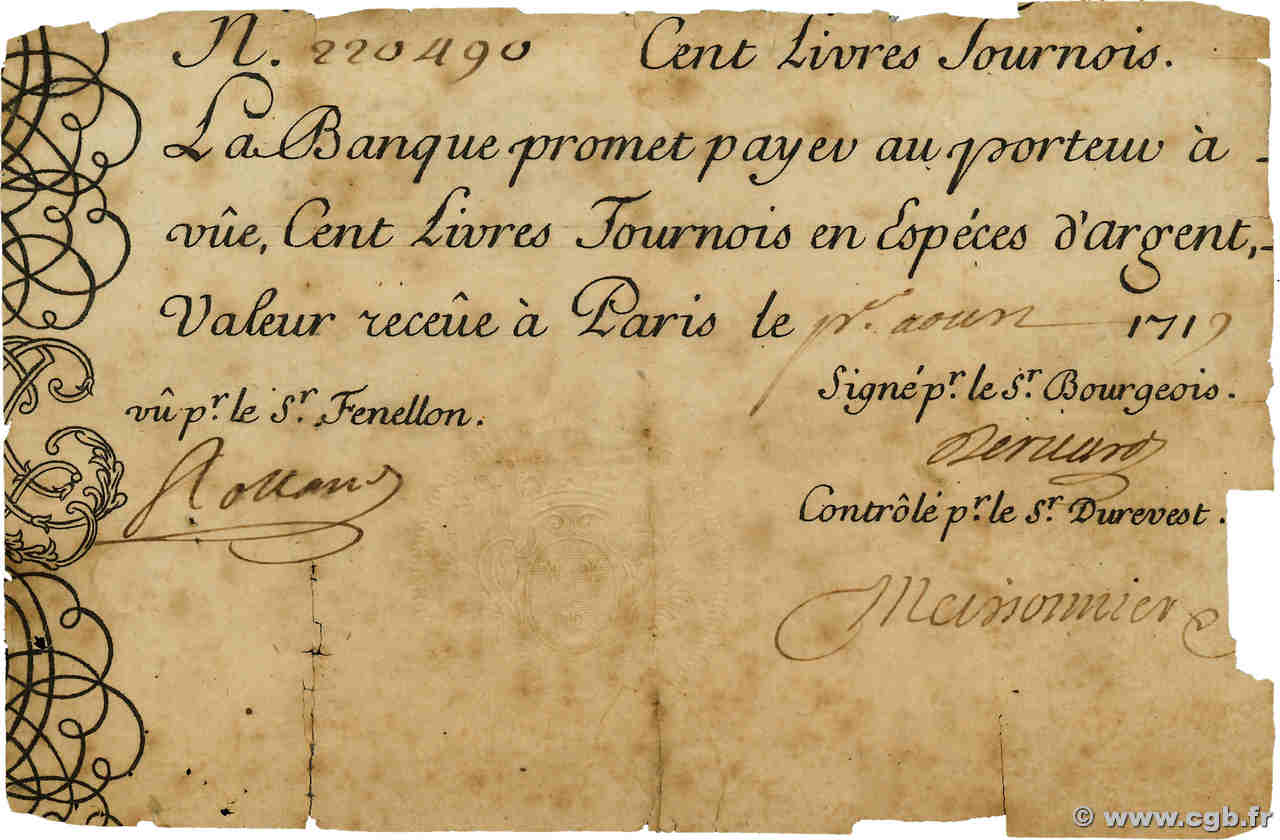 N. 220490 Cent Livres Tournois.
La Banque promet payer au porteur à
vûe, Cent Livres Tournois en Espéces d'argent,
Valeur receûe à Paris le pr. 1719
vû pr. le Sr. Fenellon.
Signé pr. le Sr. Bourgeois.
Rolland
Bernard
Contrôlé pr. le Sr. Durevest.
Meissonnier
© www.cgb.fr